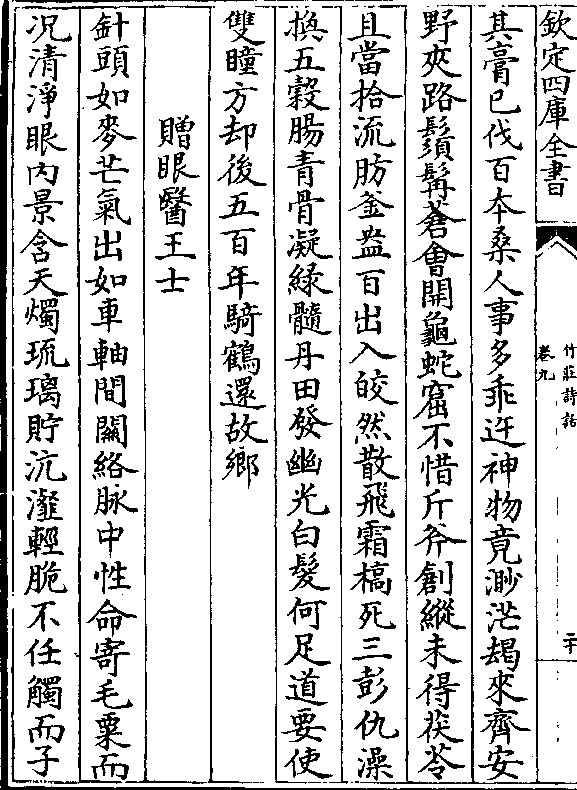 欽定四庫全書
竹莊詩話
卷九
二十
其膏已伐百本桑人事多乖迕神物竟渺茫朅來齊安
野夾路鬚髯蒼會開龜蛇窟不惜斤斧創縱未得茯苓
且當拾流肪釜盎百出入皎然散飛霜槁死三彭仇澡
換五穀腸青骨凝綠髓丹田發幽光白髮何足道要使
雙瞳方却後五百年騎鶴還故鄉
贈眼醫王士
針頭如麥芒氣出如車軸間關絡脉中性命寄毛粟而
况清淨眼内景含天燭琉璃貯沆瀣輕脆不任觸而子